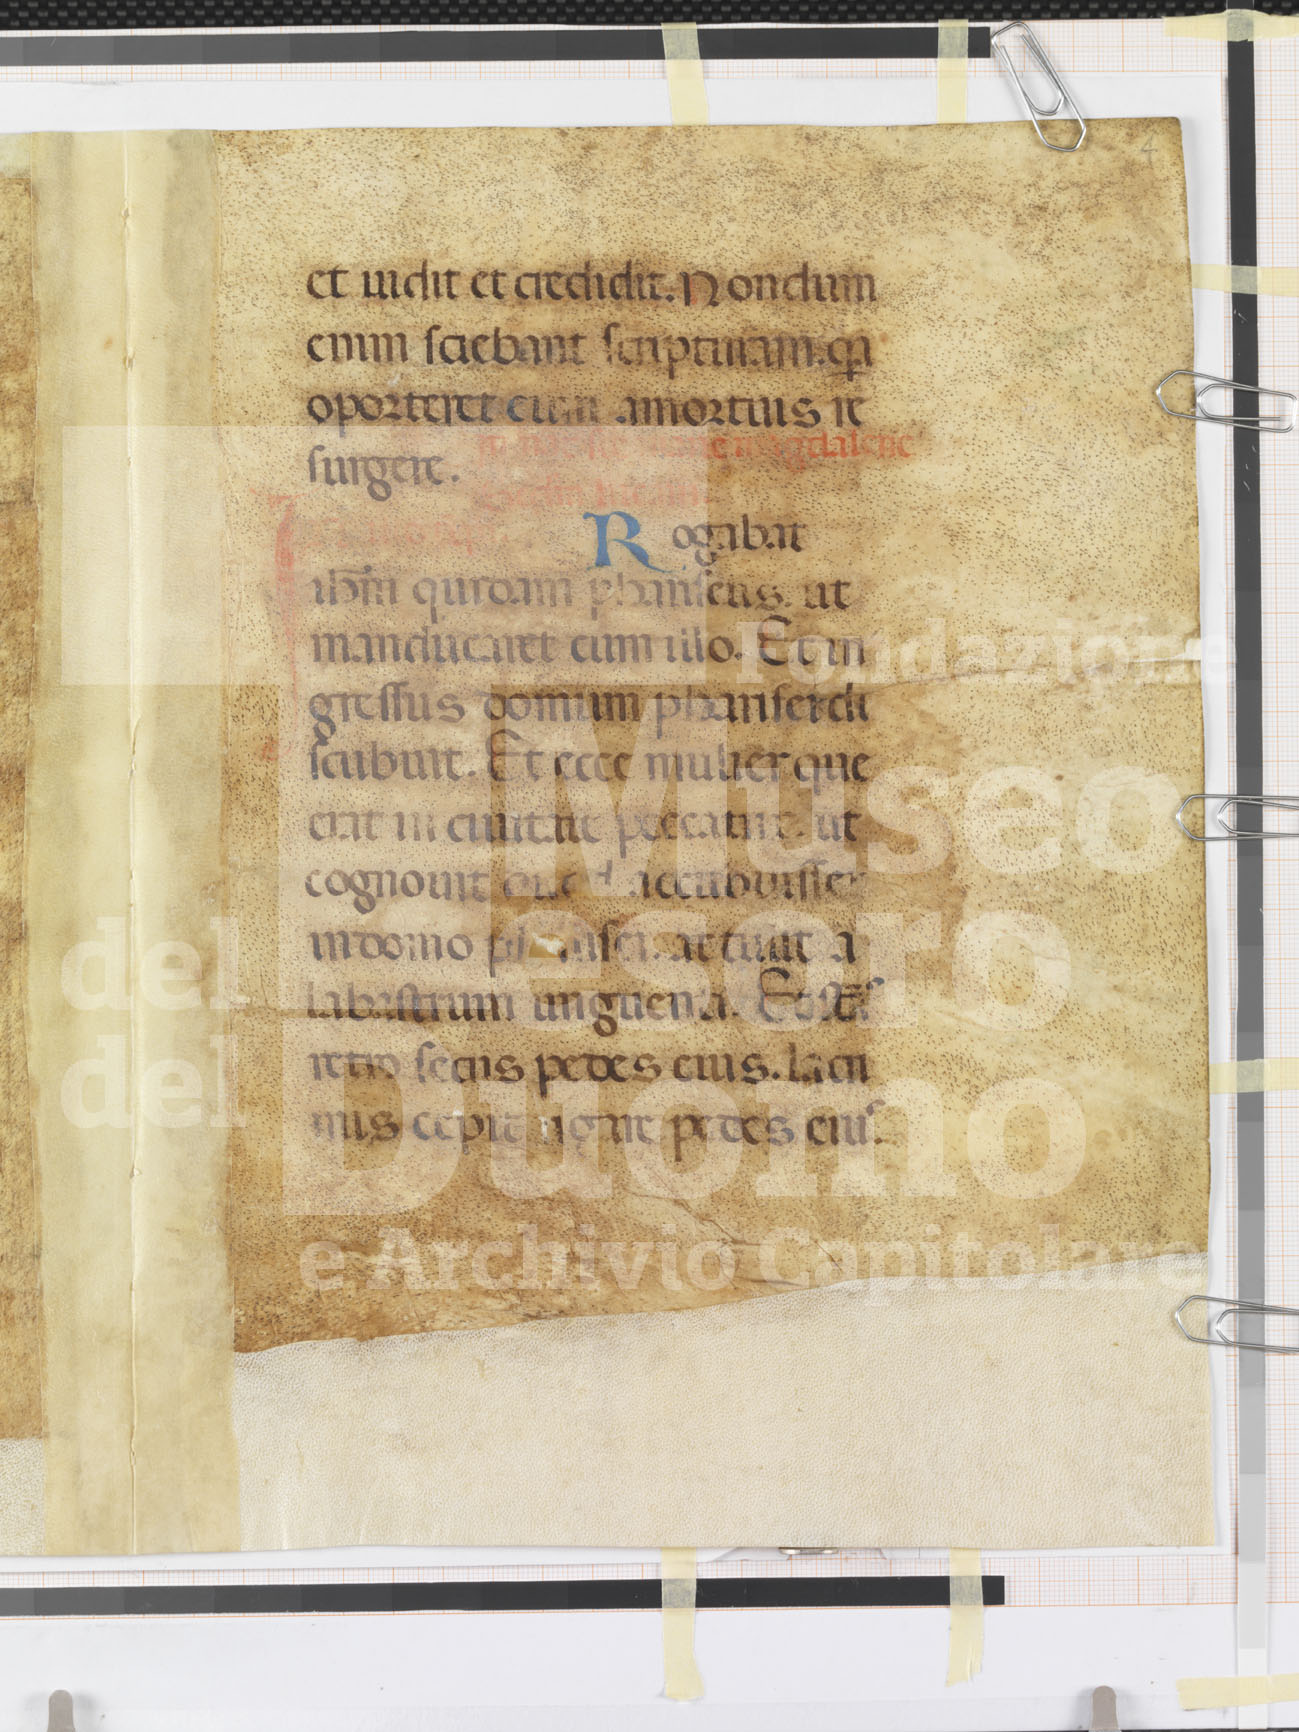 4
et uidit et credidit. Nondum
enim sciebant scripturam. qa
oporteret eum a mortuis re
magdalene
surgere.
Rogabat
ihm quidam phariseus. ut
manducaret cum illo. Et in
gressus domum pharisei di
scubuit. Et ecce mulier que
erat in ciuitate peccatrix. ut
cognouit accubuisset
in domo pharisei. attulit a
labastrum unguenti. Et stans
retro secus pedes eius. lacri
mis cepit rigare pedes eius.
Fondazione
Museo
del Tesoro
del Duomo
e Archivio Capitolare